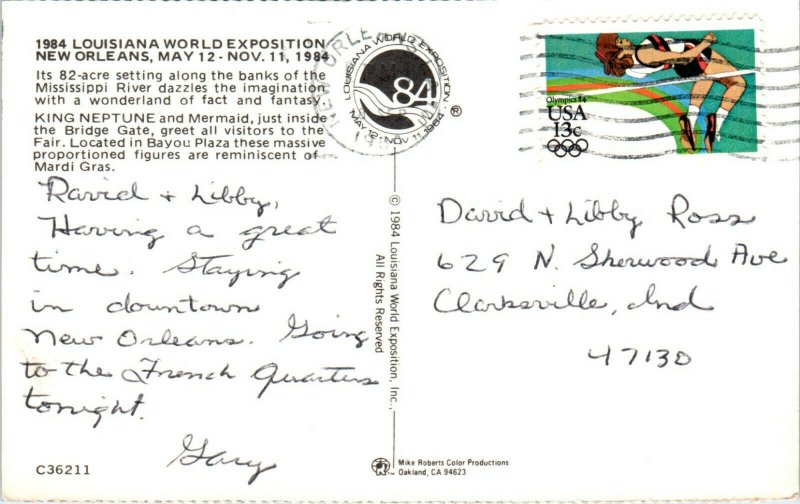 1984 LOUISIANA WORLD EXPOSITION
NEW ORLEANS, MAY 12 - NOV. 11, 1984
Its 82-acre setting along the banks of the
Mississippi River dazzles the imagination
with a wonderland of fact and fantasy.
KING NEPTUNE and Mermaid, just inside
the Bridge Gate, greet all visitors to the
Fair. Located in Bayou Plaza these massive
proportioned figures are reminiscent of
Mardi Gras.
David + Libby,
Having a great
time. Staying
in downtown
New Orleans. Going
to the French Quarters
tonight.
Gary
C36211
NEW ORLEANS
LOUISIANA WORLD EXPOSITION
84
MAY 12-NOV 11, 1984
®
© 1984 Louisiana World Exposition, Inc.,
All Rights Reserved
Mike Roberts Color Productions
Oakland, CA 94623
Olympics 84
USA
13c
David + Libby Ross
629 N. Sherwood Ave
Clarksville, Ind
47130